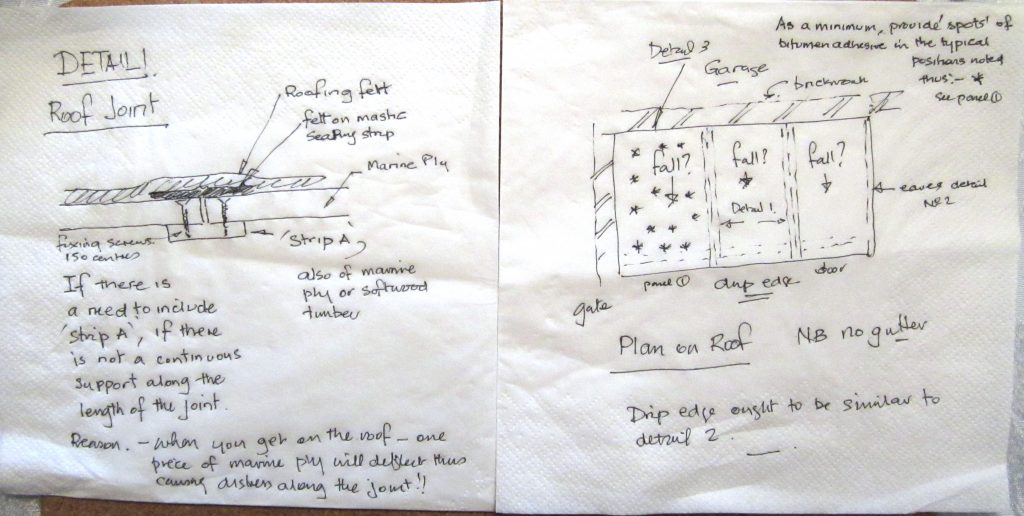 DETAIL 1.
Roof Joint
Roofing felt
felt on mastic
sealing strip
Marine Ply
fixing screws.
150 centres
'Strip A',
also of marine
ply or softwood
timber
If there is
a need to include
'strip A', if there
is not a continuous
support along the
length of the joint.
Reason. - when you get on the roof - one
piece of marine ply will deflect thus
causing distress along the joint!!
As a minimum, provide 'spots' of
bitumen adhesive in the typical
positions noted
thus:- *
See panel ①
Detail 3
Garage
brickwork
fall?
fall?
fall?
Detail 1.
eaves detail
No 2
panel ①
drip edge
door
gate
Plan on Roof
NB no gutter
Drip edge ought to be similar to
detail 2.